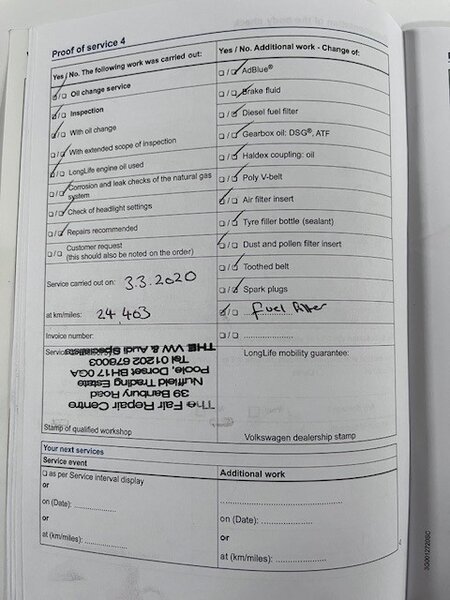 Proof of service 4
Yes / No. The following work was carried out:
Oil change service
Inspection
With oil change
With extended scope of inspection
LongLife engine oil used
Corrosion and leak checks of the natural gas
system
Check of headlight settings
Repairs recommended
Customer request
(this should also be noted on the order)
Service carried out on: 3.3.2020
at km/miles: 24,403
Invoice number:
Service
The Fair Repair Centre
39 Banbury Road
Nuffield Trading Estate
Poole, Dorset BH17 0GA
Tel 01202 678003
THE VW & Audi Specialists
Stamp of qualified workshop
Yes / No. Additional work - Change of:
AdBlue®
Brake fluid
Diesel fuel filter
Gearbox oil: DSG®, ATF
Haldex coupling: oil
Poly V-belt
Air filter insert
Tyre filler bottle (sealant)
Dust and pollen filter insert
Toothed belt
Spark plugs
Fuel filter
LongLife mobility guarantee:
Volkswagen dealership stamp
Your next services
Service event
as per Service interval display
or
on (Date):
or
at (km/miles):
Additional work
on (Date):
or
at (km/miles):